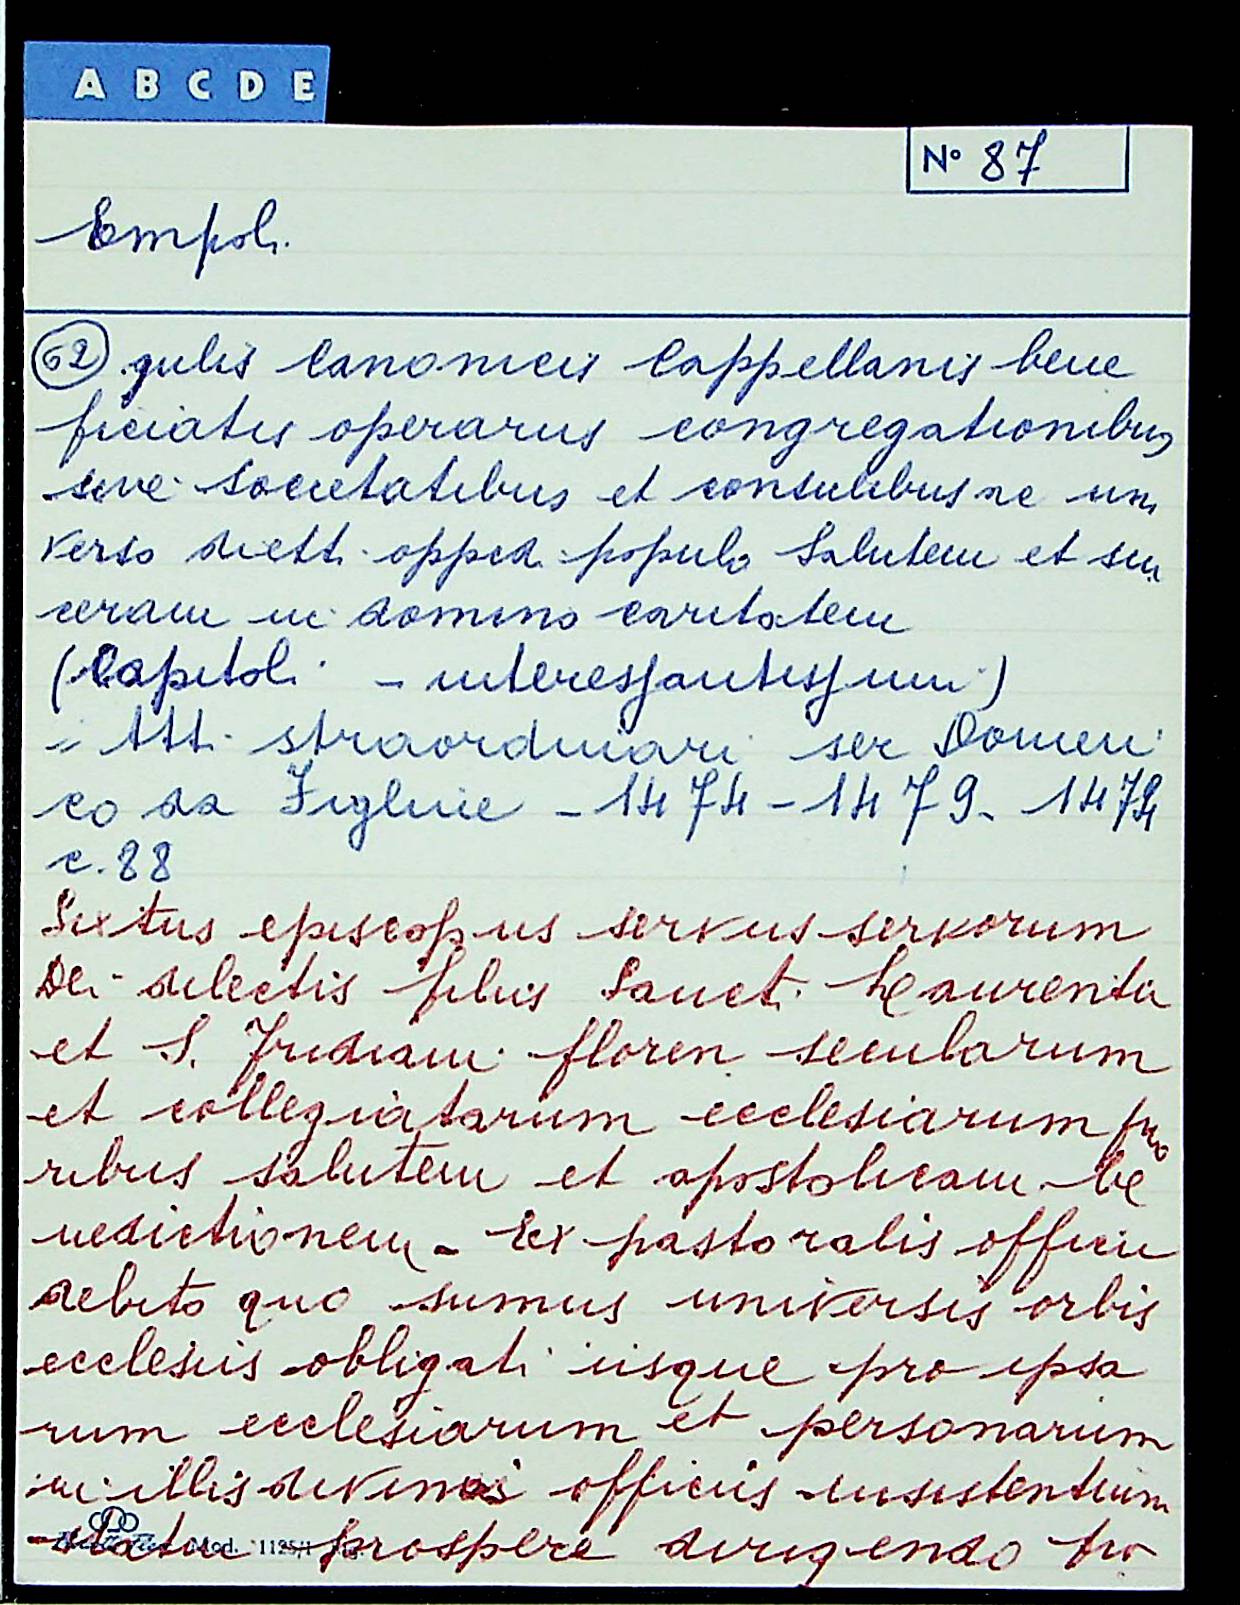 A B C D E
Nº 87
Empoli
62 gulis Canonicis Cappellanis bene
ficiatis operariis congregationibus
sive societatibus et consulibus ac uni
verso dicti oppidi populo Salutem et sin
ceram in domino caritatem
(Capitoli - interessantissimi)
= Atti straordinari ser Domeni
co da Figline - 1474 - 1479 - 1479
c. 88
Sixtus episcopus servus servorum
Dei dilectis filiis Sancti Laurentii
et S. Fridiani floren secularum
et collegiatarum ecclesiarum prio
ribus salutem et apostolicam be
nedictionem - Ex pastoralis officii
debito quo sumus universis orbis
ecclesiis obligati iisque pro ipsa
rum ecclesiarum et personarum
in illis divinis officiis insistentium
statu prospere dirigendo pro
Mod. 1125/1